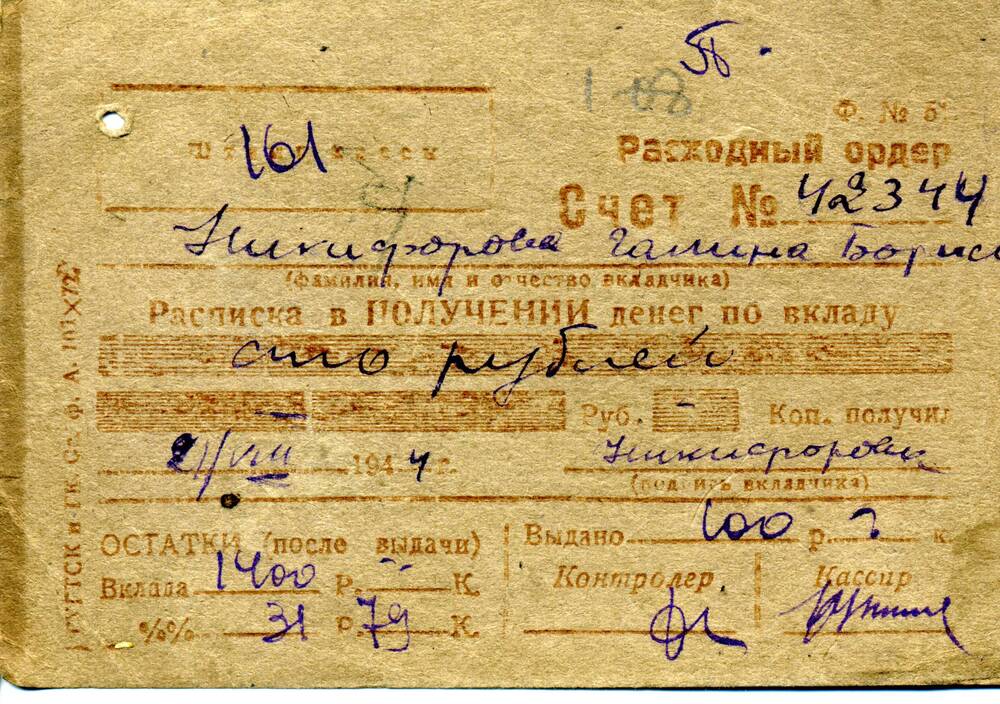 1-08
Ф. № 5
161
Расходный ордер
Счет № 42344
Никифорова Галина Борис
(фамилия, имя и отчество вкладчика)
Расписка в ПОЛУЧЕНИИ денег по вкладу
сто рублей
Руб. - Коп. получил
21/VIII 1944 г. Никифорова
(подпись вкладчика)
ОСТАТКИ (после выдачи)
Выдано 100 р. к.
Вклада 1400 Р. К.
%% 31 Р. 79 К.
Контролер. Кассир